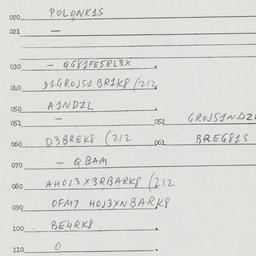 020 POLQNK1S
021 —
030 — QG81FESRL3X
040 D1GROJS1 BR1K8 (212
050 A1NDZL
051 — 052 GROJS1NDZL
060 D3BREK8 (212 061 BREG81S
070 — QBAM
080 AHOJ3X3RBARK8 (212
090 OFM7 HOJ3XNBARK8
100 BE4RK8
110 O